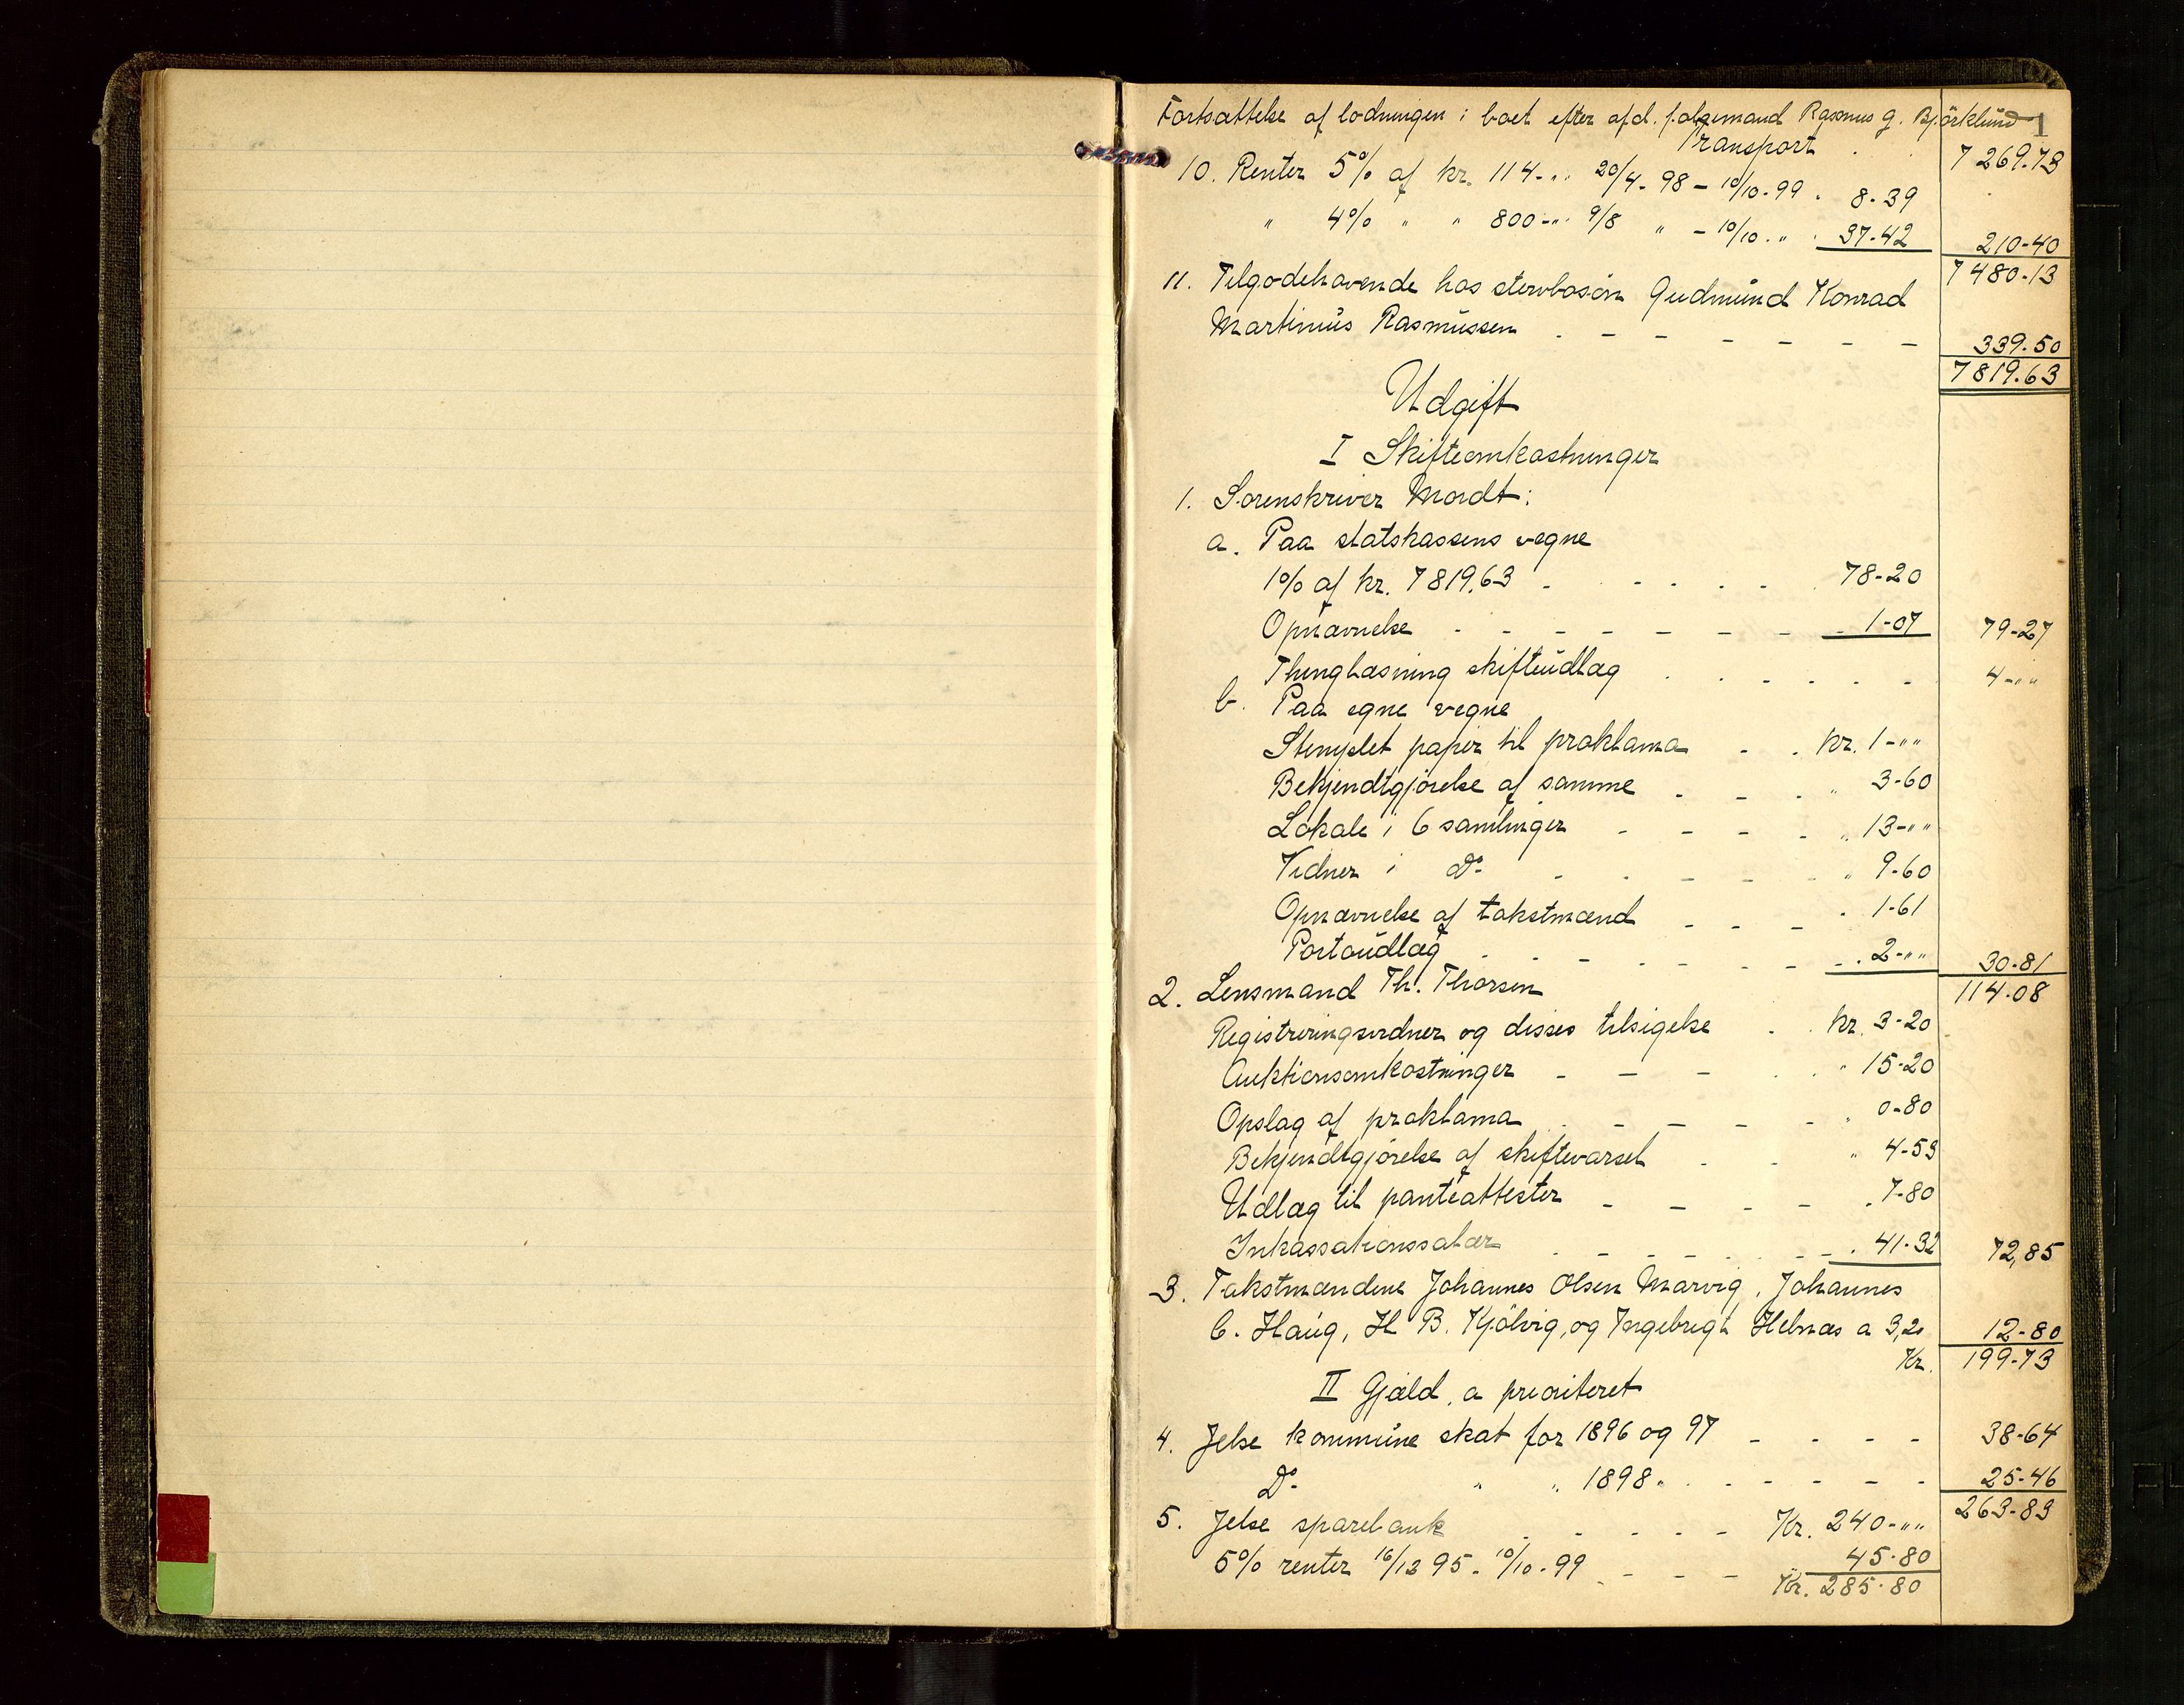 Fortsættelse af lodningen i boet efter afd. folgemand Rasmus G. Björklund 1
Transport . . 7269.73
10. Renter 5% af kr. 114-"" 20/4-98 - 10/10-99 . 8-39
" 4% " " 800-"" 9/8 " - 10/10." . 37-42 210-40
7480-13
11. Tilgodehavende hos stervbosön Gudmund Konrad
Martinius Rasmussen . - - - - - - 339.50
7819.63
Udgift
I Skifteomkostninger
1. Sorenskriver Mordt:
a. Paa statskassens vegne
1% af kr. 7819,63 - . - . - . - 78-20
Opnævnelse - - - - - - - 1-07 79-27
Thinglæsning skifteudlæg . . . - - - 4-""
b. Paa egne vegne
Stemplet papir til proklama - . kr. 1-""
Bekjendtgjörelse af samme - - . " 3-60
Lokale i 6 samlinger - - - - " 13-""
Vidner i Do - . - - - " 9-60
Opnævnelse af takstmænd - - - . 1-61
Portoudlæg - . - - - - - . 2-"" 30-81
114-08
2. Lensmand Th. Thorsen
Registreringsvidner og disses tilsigelse . . kr. 3-20
Auktionsomkostninger - - - . . " 15-20
Opslag af proklama . - - - - " 0-80
Bekjendtgjörelse af skiftevarsel . - " 4-53
Udlæg til panteattester - - - - . 7-80
Inkassationssalær . - - - - - - . 41-32 72,85
3. Takstmændene Johannes Olsen Marvig, Johannes
C. Haug, H B. Kjölvig, og Ingebrigt Helnæs a 3,20 12-80
Kr. 199-73
II Gjæld, a prioriteret
4. Jelse kommune skat for 1896 og 97 - - - - 38-64
Do " " 1898. . - - - - - 25-46
263-83
5. Jelse sparebank . - - - - Kr. 240-""
5% renter 16/12 95 - 10/10-99 - - - 45-80
Kr. 285-80